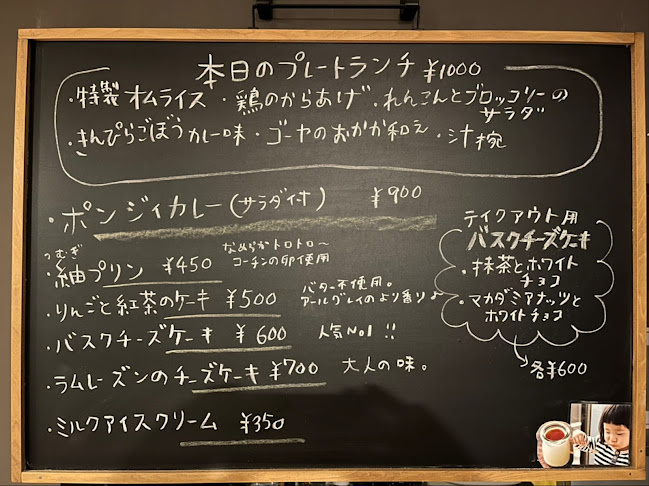 本日のプレートランチ ¥1000
・特製オムライス ・鶏のからあげ ・れんこんとブロッコリーの
サラダ
・きんぴらごぼうカレー味 ・ゴーヤのおかか和え ・汁椀
・ポンジィカレー(サラダ付) ¥900
つむぎ
・紬プリン ¥450
なめらかトロトロ〜
コーチンの卵使用
・りんごと紅茶のケーキ ¥500
バター不使用。
アールグレイのよい香り♪
・バスクチーズケーキ ¥600 人気No1 !!
・ラムレーズンのチーズケーキ ¥700 大人の味。
・ミルクアイスクリーム ¥350
テイクアウト用
バスクチーズケーキ
・抹茶とホワイト
チョコ
・マカダミアナッツと
ホワイトチョコ
各¥600